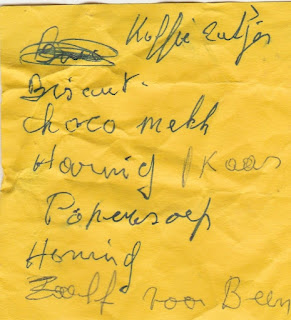 Koffie Zutjes
Biscuit.
choco melk
Honing / Kaas
Popensoep
Honing
Zalf voor Been